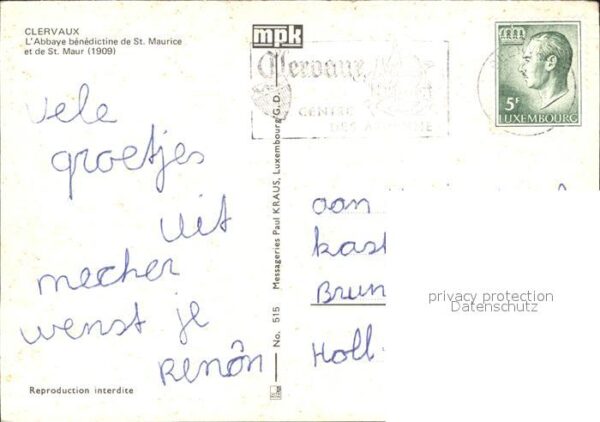 CLERVAUX
L'Abbaye bénédictine de St. Maurice
et de St. Maur (1909)
mpk
Clervaux
CENTRE
DES ARDENNE
5F
LUXEMBOURG
Vele
groetjes
uit
mecher
wenst je
Renôn
No. 515 Messageries Paul KRAUS, Luxembourg/G.D.
aan
kast
Brun
Holl
privacy protection
Datenschutz
Reproduction interdite